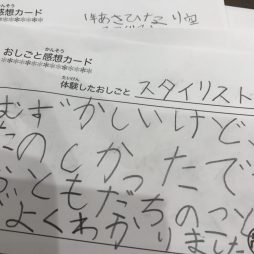 感想カード
かんそう
おしごと感想カード
たいけん
体験したおしごと スタイリスト
むずかしいけど、
たのしかったです
おともだちのこと
がよくわかりました